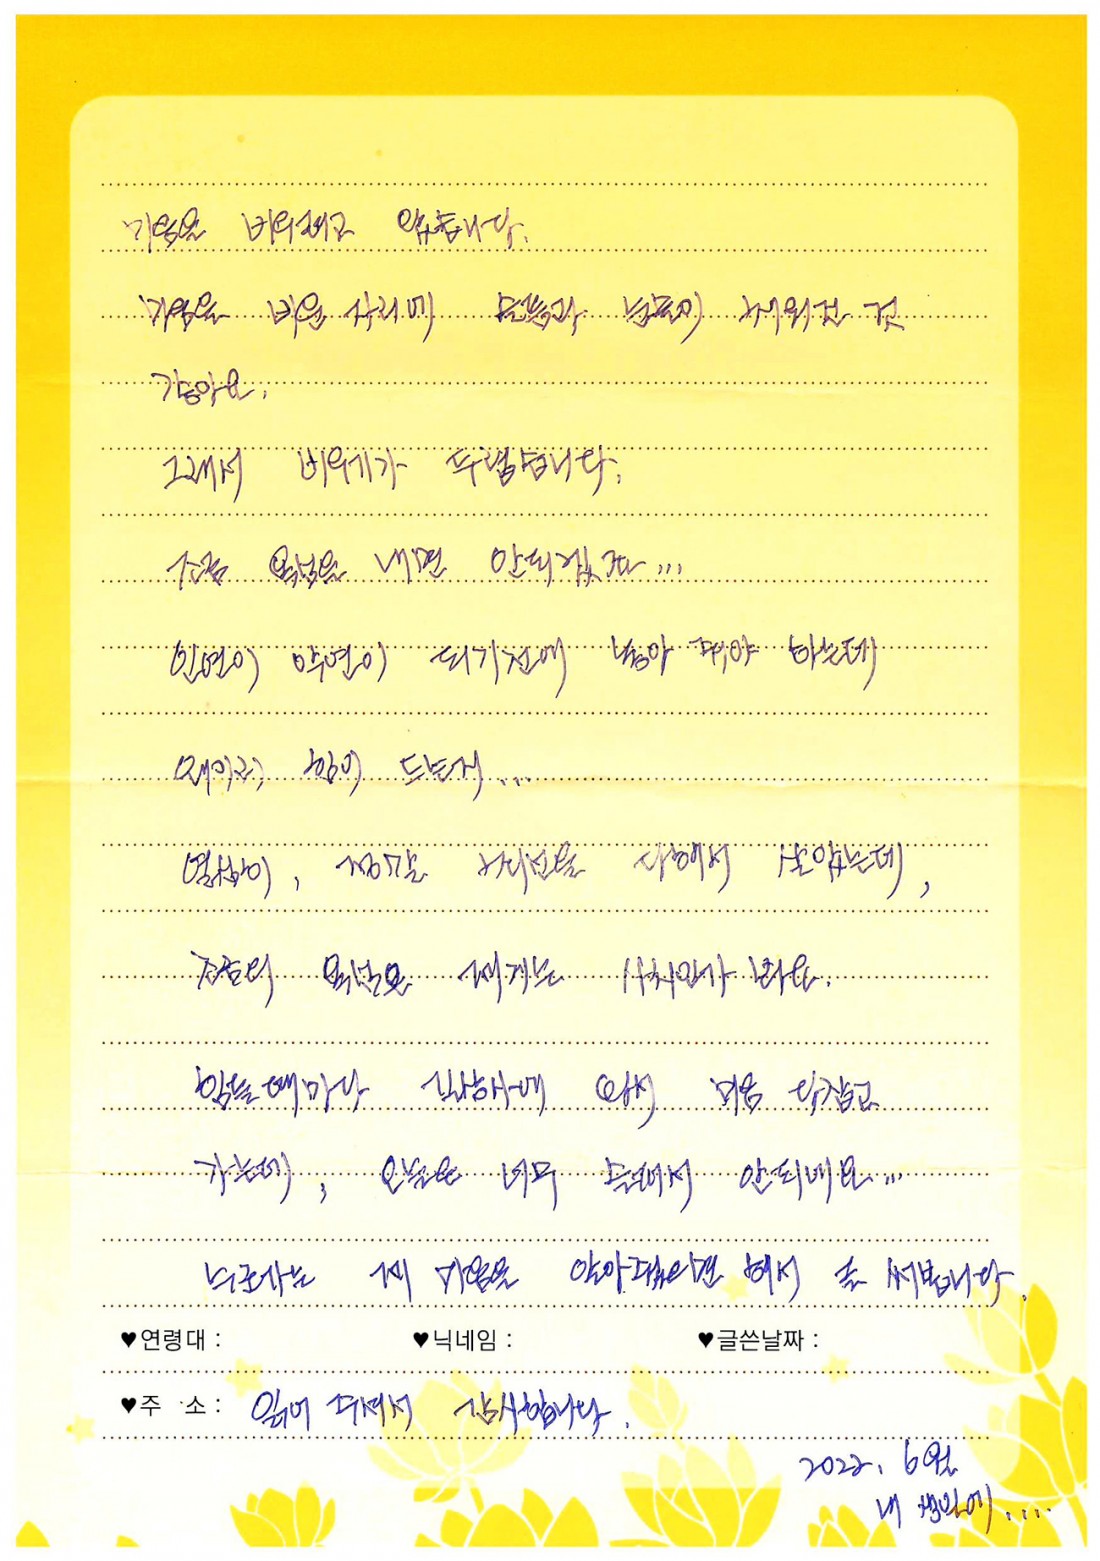 마음을 비워내고 있습니다.
마음을 비운 자리에 슬픔과 눈물이 채워진 것
같아요.
그래서 비우기가 두렵습니다.
조금 욕심을 내면 안되겠죠...
인연이 악연이 되기전에 놓아 줘야 하는데
왜이리 힘이 드는지...
열심히, 정말 최선을 다해서 살았는데,
조금의 욕심도 제게는 사치인가 봐요.
힘들때마다 길상사에 와서 마음 다잡고
가는데, 오늘은 너무 슬퍼서 안되네요...
누군가는 제 마음을 알아줬으면 해서 글 써봅니다.
♥연령대 : ♥닉네임 : ♥글쓴날짜 :
♥주 소 : 읽어 주셔서 감사합니다.
2022. 6월
내 생일에....